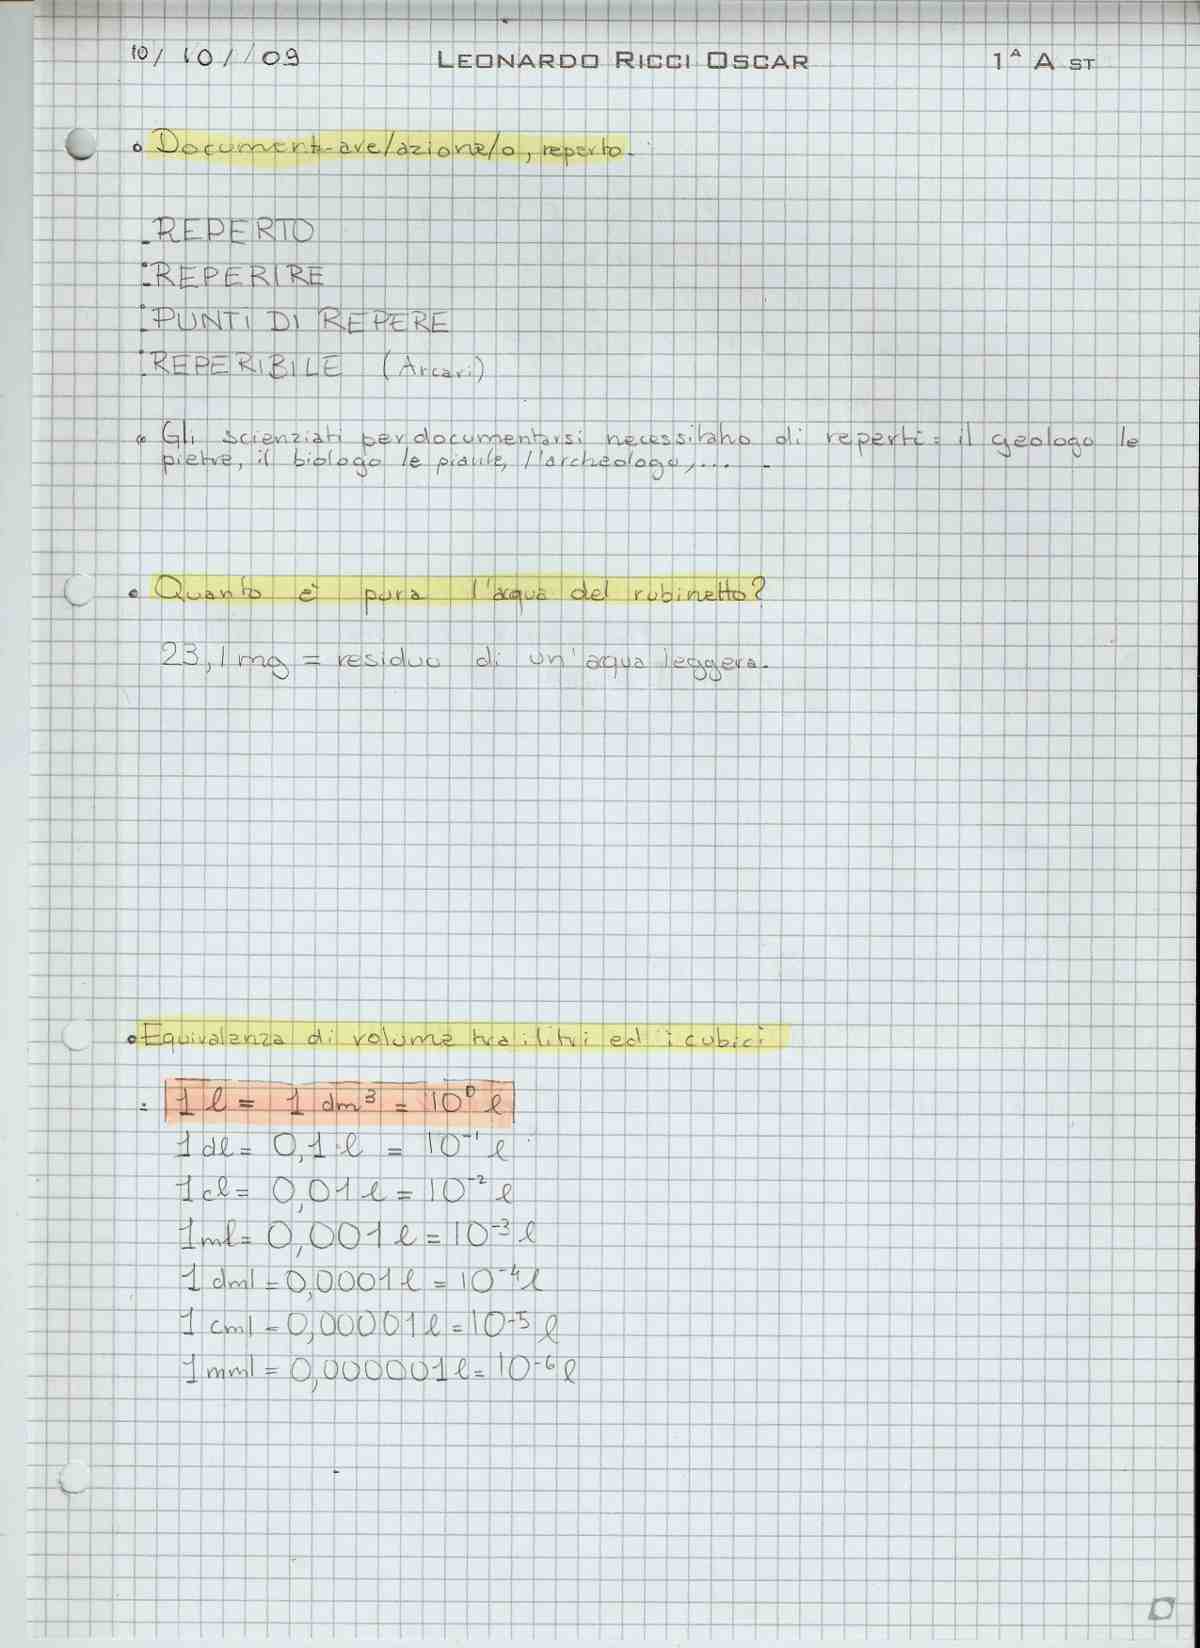 10/ 10/ /09 LEONARDO RICCI OSCAR 1ᴬ A ST
• Document-are/azione/o, reperto.
- REPERTO
- REPERIRE
- PUNTI DI REPERE
- REPERIBILE (Arcari)
• Gli scienziati per documentarsi necessitano di reperti = il geologo le
pietre, il biologo le piante, l'archeologo,... .
• Quanto è pura l'acqua del rubinetto?
23,1 mg = residuo di un'acqua leggera.
• Equivalenza di volume tra i litri ed i cubici
= 1 l = 1 dm³ = 10⁰ l
1 dl = 0,1 l = 10⁻¹ l
1 cl = 0,01 l = 10⁻² l
1 ml = 0,001 l = 10⁻³ l
1 dml = 0,0001 l = 10⁻⁴ l
1 cml = 0,00001 l = 10⁻⁵ l
1 mml = 0,000001 l = 10⁻⁶ l